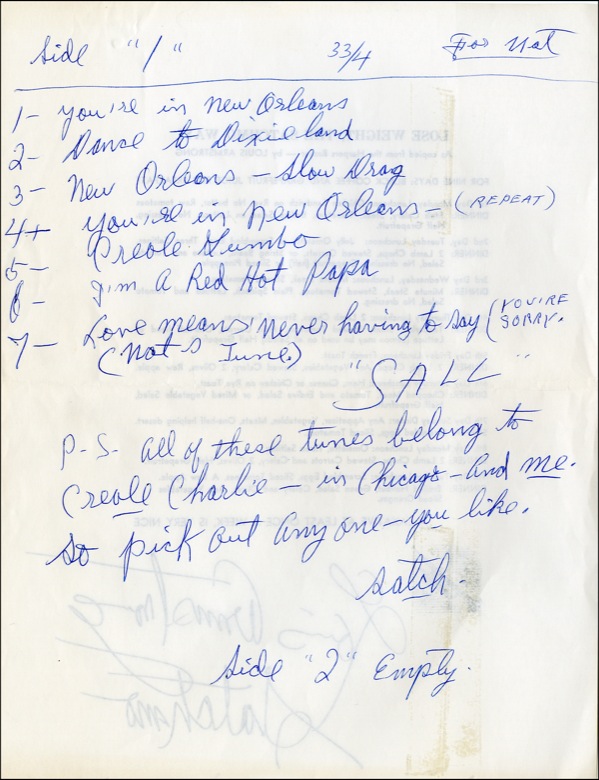 Side "1" 33/4 For Nat
1- You're in New Orleans
2- Danse to Dixieland
3- New Orleans - Slow Drag
4+ You're in New Orleans - (REPEAT)
5- Creole Gumbo
6- I'm A Red Hot Papa
7- Love means never having to say (YOU'RE SORRY.
(Nat's Tune)
"SALL"
P.S. All of these tunes belong to
Creole Charlie - in Chicago - And me.
So pick out Any one - you like.
Satch.
Side "2" Empty.